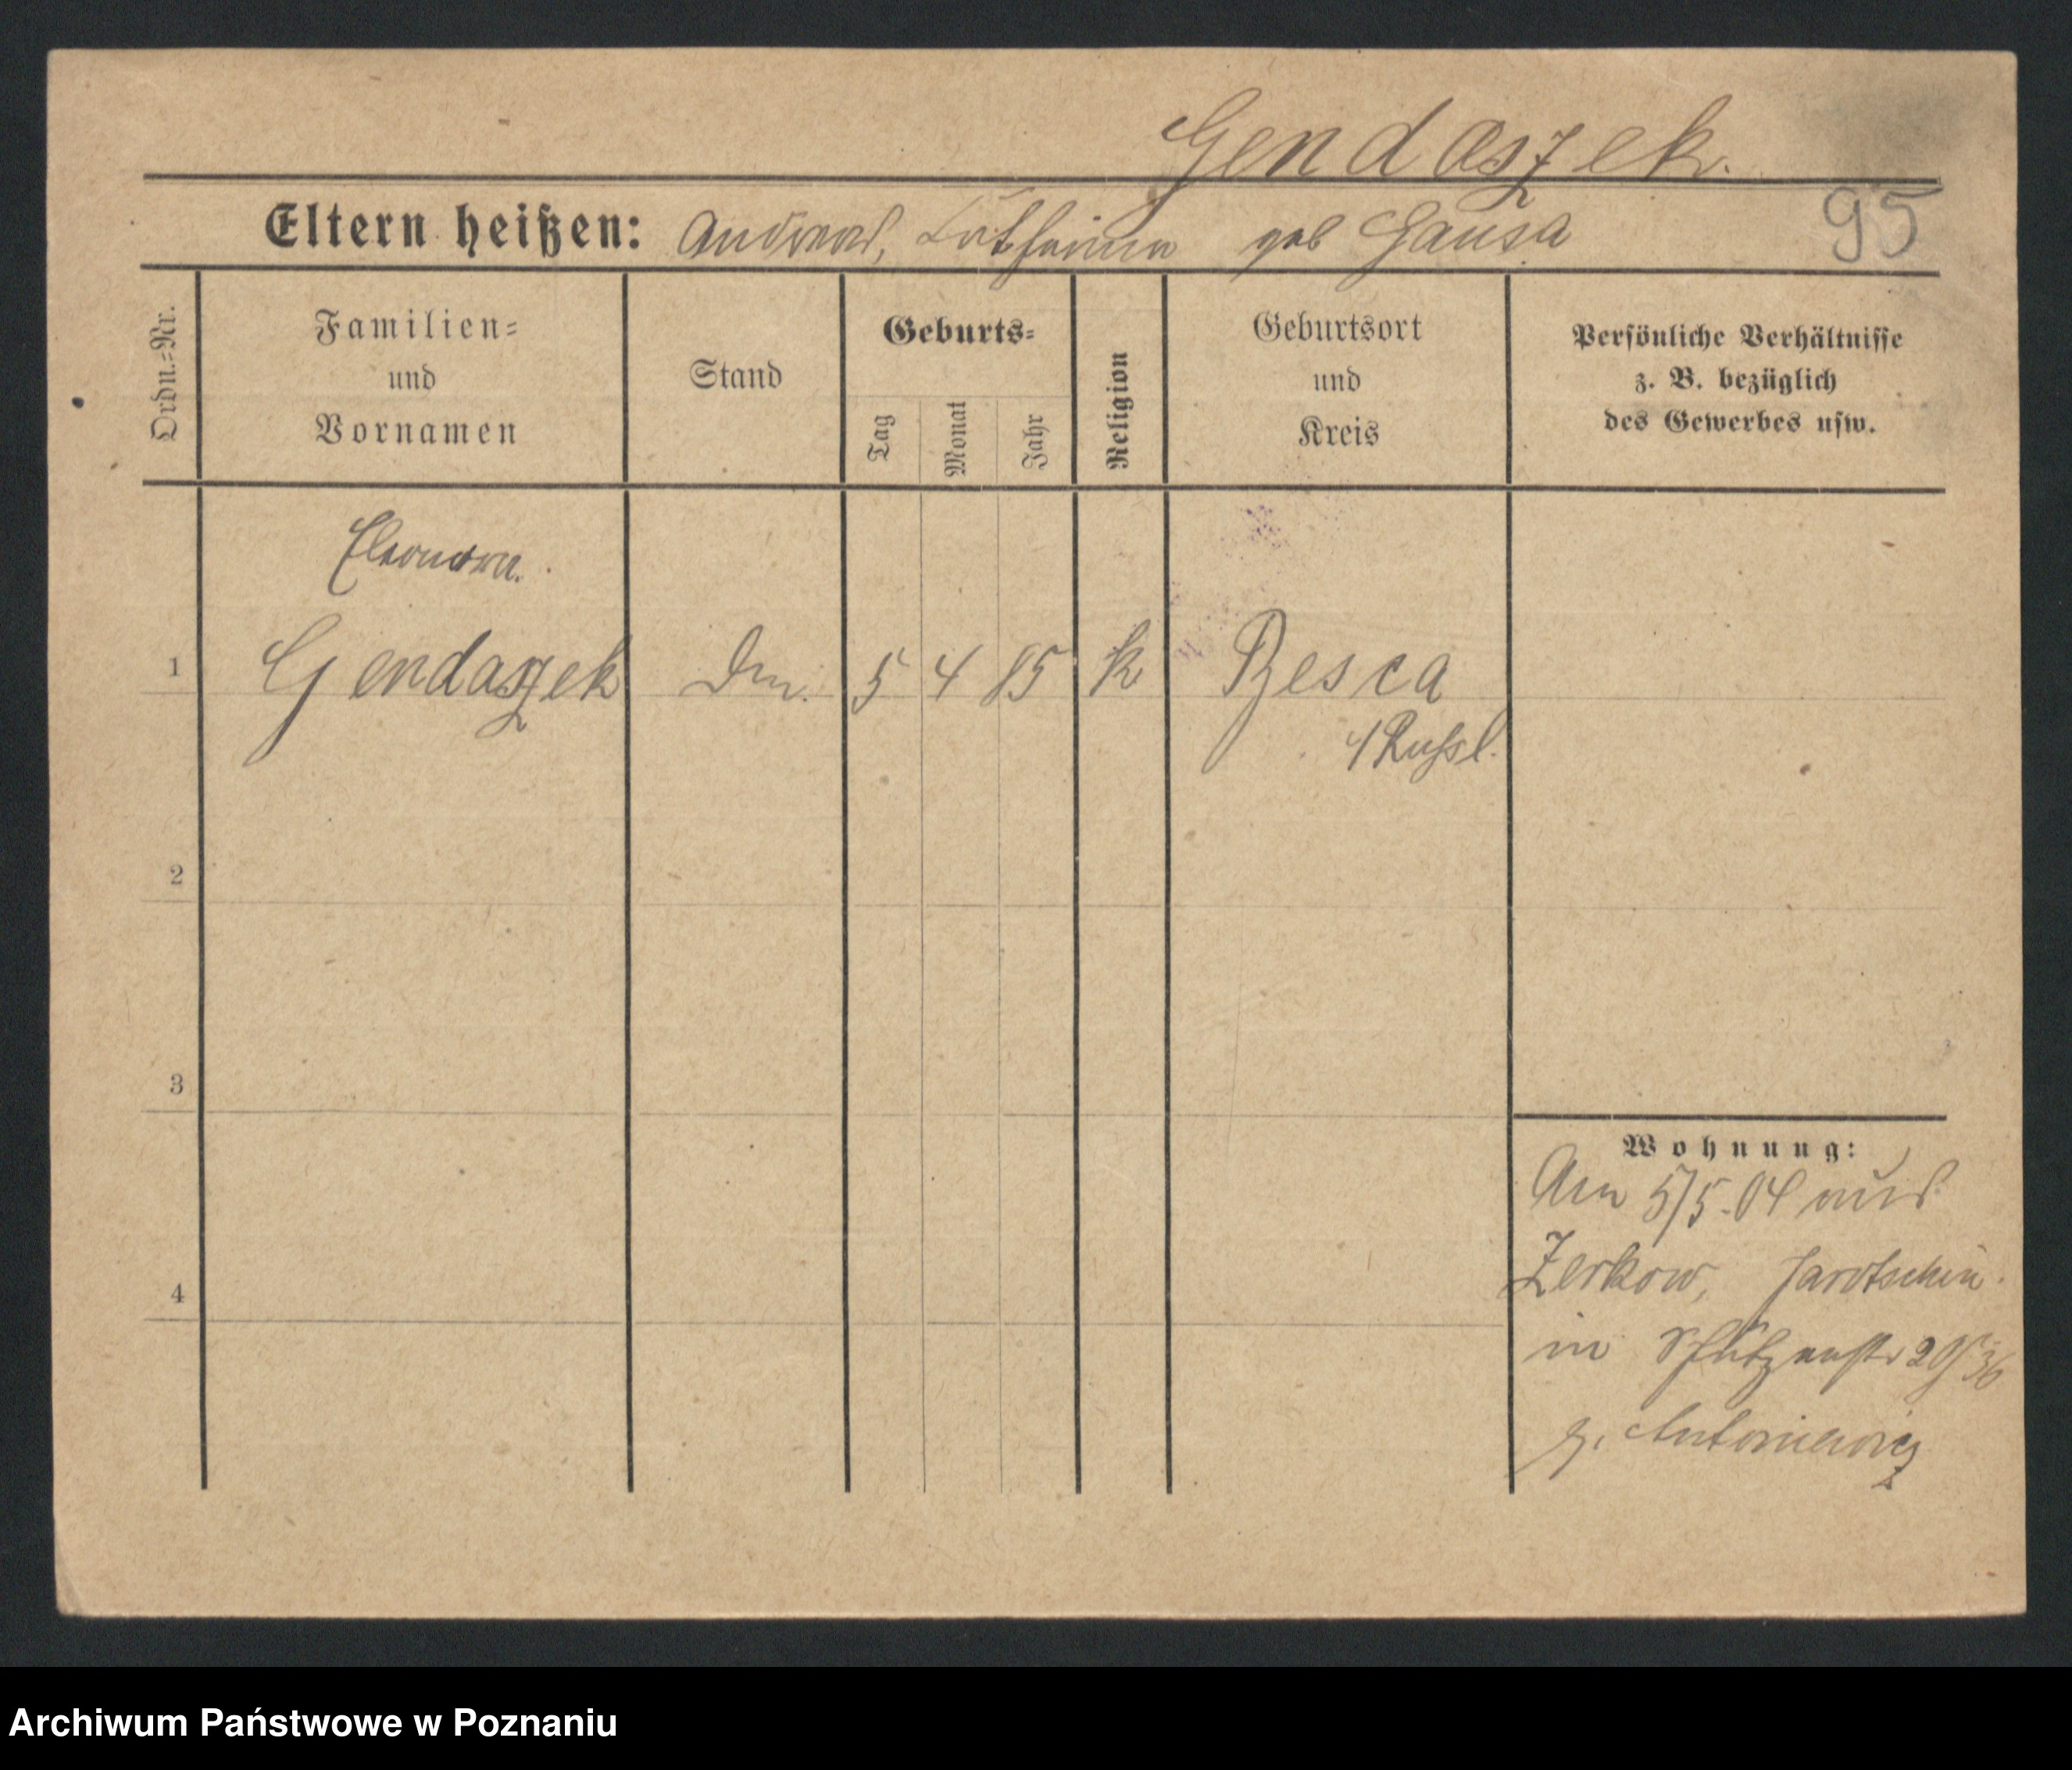 Gendaszek.
Eltern heißen: Andreas, Katharina geb Gausa
95
Ordn.=Nr.
Familien=
und
Vornamen
Stand
Geburts=
Tag
Monat
Jahr
Religion
Geburtsort
und
Kreis
Persönliche Verhältnisse
z. B. bezüglich
des Gewerbes usw.
Eleonora.
1 Gendaszek 5 4 85 k Besca
Russl.
2
3
4
Wohnung:
Am 5/5.04 aus
Zerkow, Jarotschin.
in Schützenstr 29/36
Antoniewicz
Archiwum Państwowe w Poznaniu